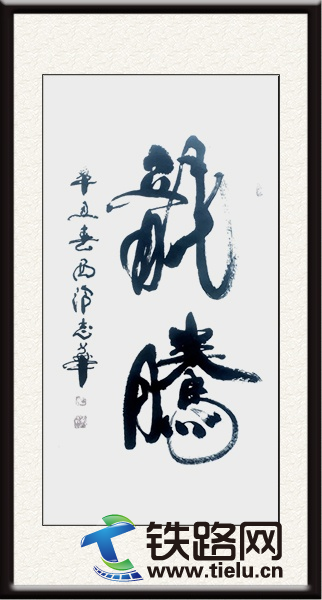 龍騰
辛丑春西志華
铁路网
www.tielu.cn